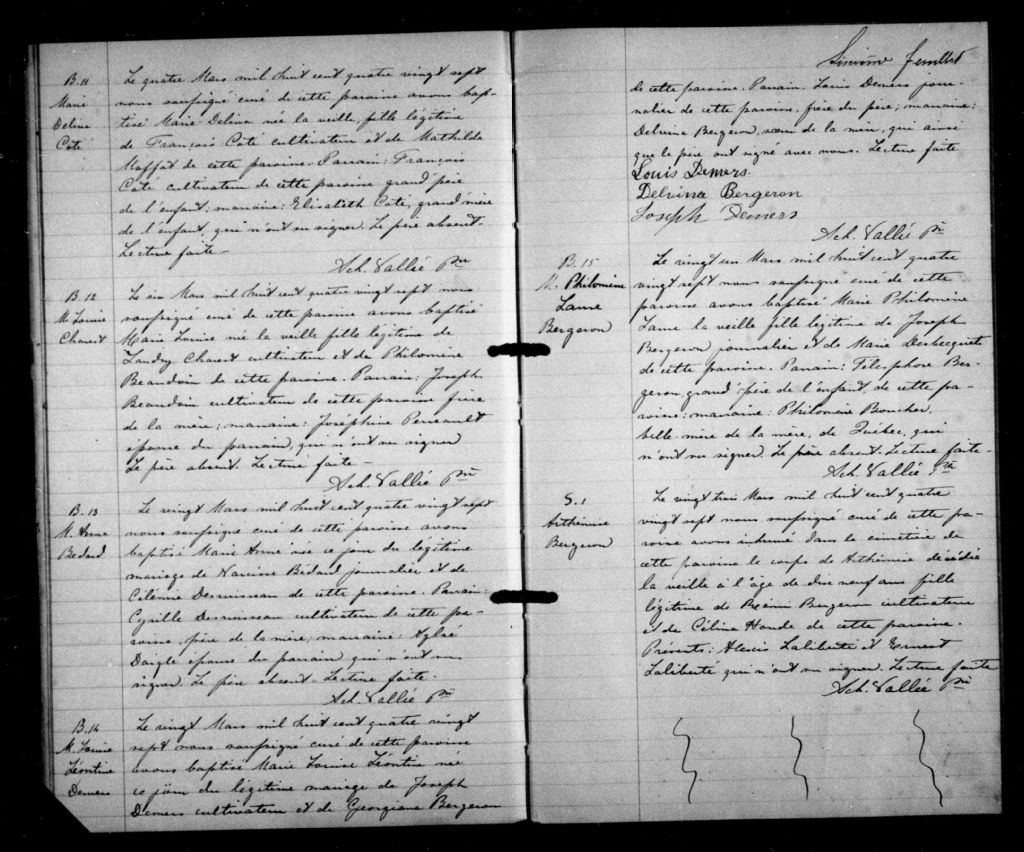 B.11
Marie
Delina
Coté
Le quatre Mars mil huit cent quatre vingt sept
nous soussigné curé de cette paroisse avons bap-
tisé Marie Delina née la veille, fille légitime
de François Coté cultivateur et de Mathilde
Moffat de cette paroisse. Parrain: François
Coté cultivateur de cette paroisse grand père
de l'enfant; marraine: Elisabeth Coté, grand'mère
de l'enfant, qui n'ont su signer. Le père absent.
Lecture faite -
Ach. Vallée Ptre
B.12
M. Louise
Charest
Le six Mars mil huit cent quatre vingt sept nous
soussigné curé de cette paroisse avons baptisé
Marie Louise née la veille fille légitime de
Landry Charest cultivateur et de Philomène
Beaudoin de cette paroisse. Parrain: Joseph
Beaudoin cultivateur de cette paroisse frère
de la mère; marraine: Joséphine Perreault
épouse du parrain, qui n'ont su signer
Le père absent. Lecture faite -
Ach. Vallée Ptre
B.13
M. Anne
Bédard
Le vingt Mars mil huit cent quatre vingt sept
nous soussigné curé de cette paroisse avons
baptisé Marie Anne née ce jour du légitime
mariage de Narcisse Bédard journalier et de
Célénie Desruisseau de cette paroisse. Parrain:
Cyrille Desruisseau cultivateur de cette pa-
roisse, père de la mère; marraine: Aglaé
Daigle épouse du parrain qui n'ont su
signer. Le père absent. Lecture faite.
Ach. Vallée Ptre
B.14
M. Louise
Léontine
Demers
Le vingt Mars mil huit cent quatre vingt
sept nous soussigné curé de cette paroisse
avons baptisé Marie Louise Léontine née
ce jour du légitime mariage de Joseph
Demers cultivateur et de Georgiana Bergeron
Sixième feuillet
de cette paroisse. Parrain: Louis Demers jour-
nalier de cette paroisse, frère du père; marraine:
Delvina Bergeron, sœur de la mère, qui ainsi
que le père ont signé avec nous. Lecture faite
Louis Demers
Delvina Bergeron
Joseph Demers
Ach. Vallée Ptre
B.15
M. Philomène
Laure
Bergeron
Le vingt un Mars mil huit cent quatre
vingt sept nous soussigné curé de cette
paroisse avons baptisé Marie Philomène
Laure la veille fille légitime de Joseph
Bergeron journalier et de Marie Desbecquets
de cette paroisse. Parrain: Télesphore Ber-
geron, grand'père de l'enfant, de cette pa-
roisse; marraine: Philomène Boucher,
belle-mère de la mère, de Québec, qui
n'ont su signer. Le père absent. Lecture faite.
Ach. Vallée Ptre
S.1
Arthémise
Bergeron
Le vingt trois Mars mil huit cent quatre
vingt sept nous soussigné curé de cette pa-
roisse avons inhumé dans le cimetière de
cette paroisse le corps de Arthémise décédée
la veille à l'âge de dix neuf ans fille
légitime de Rémi Bergeron cultivateur
et de Célina Houde de cette paroisse.
Présents: Alexis Laliberté et Ernest
Laliberté qui n'ont su signer. Lecture faite
Ach. Vallée Ptre